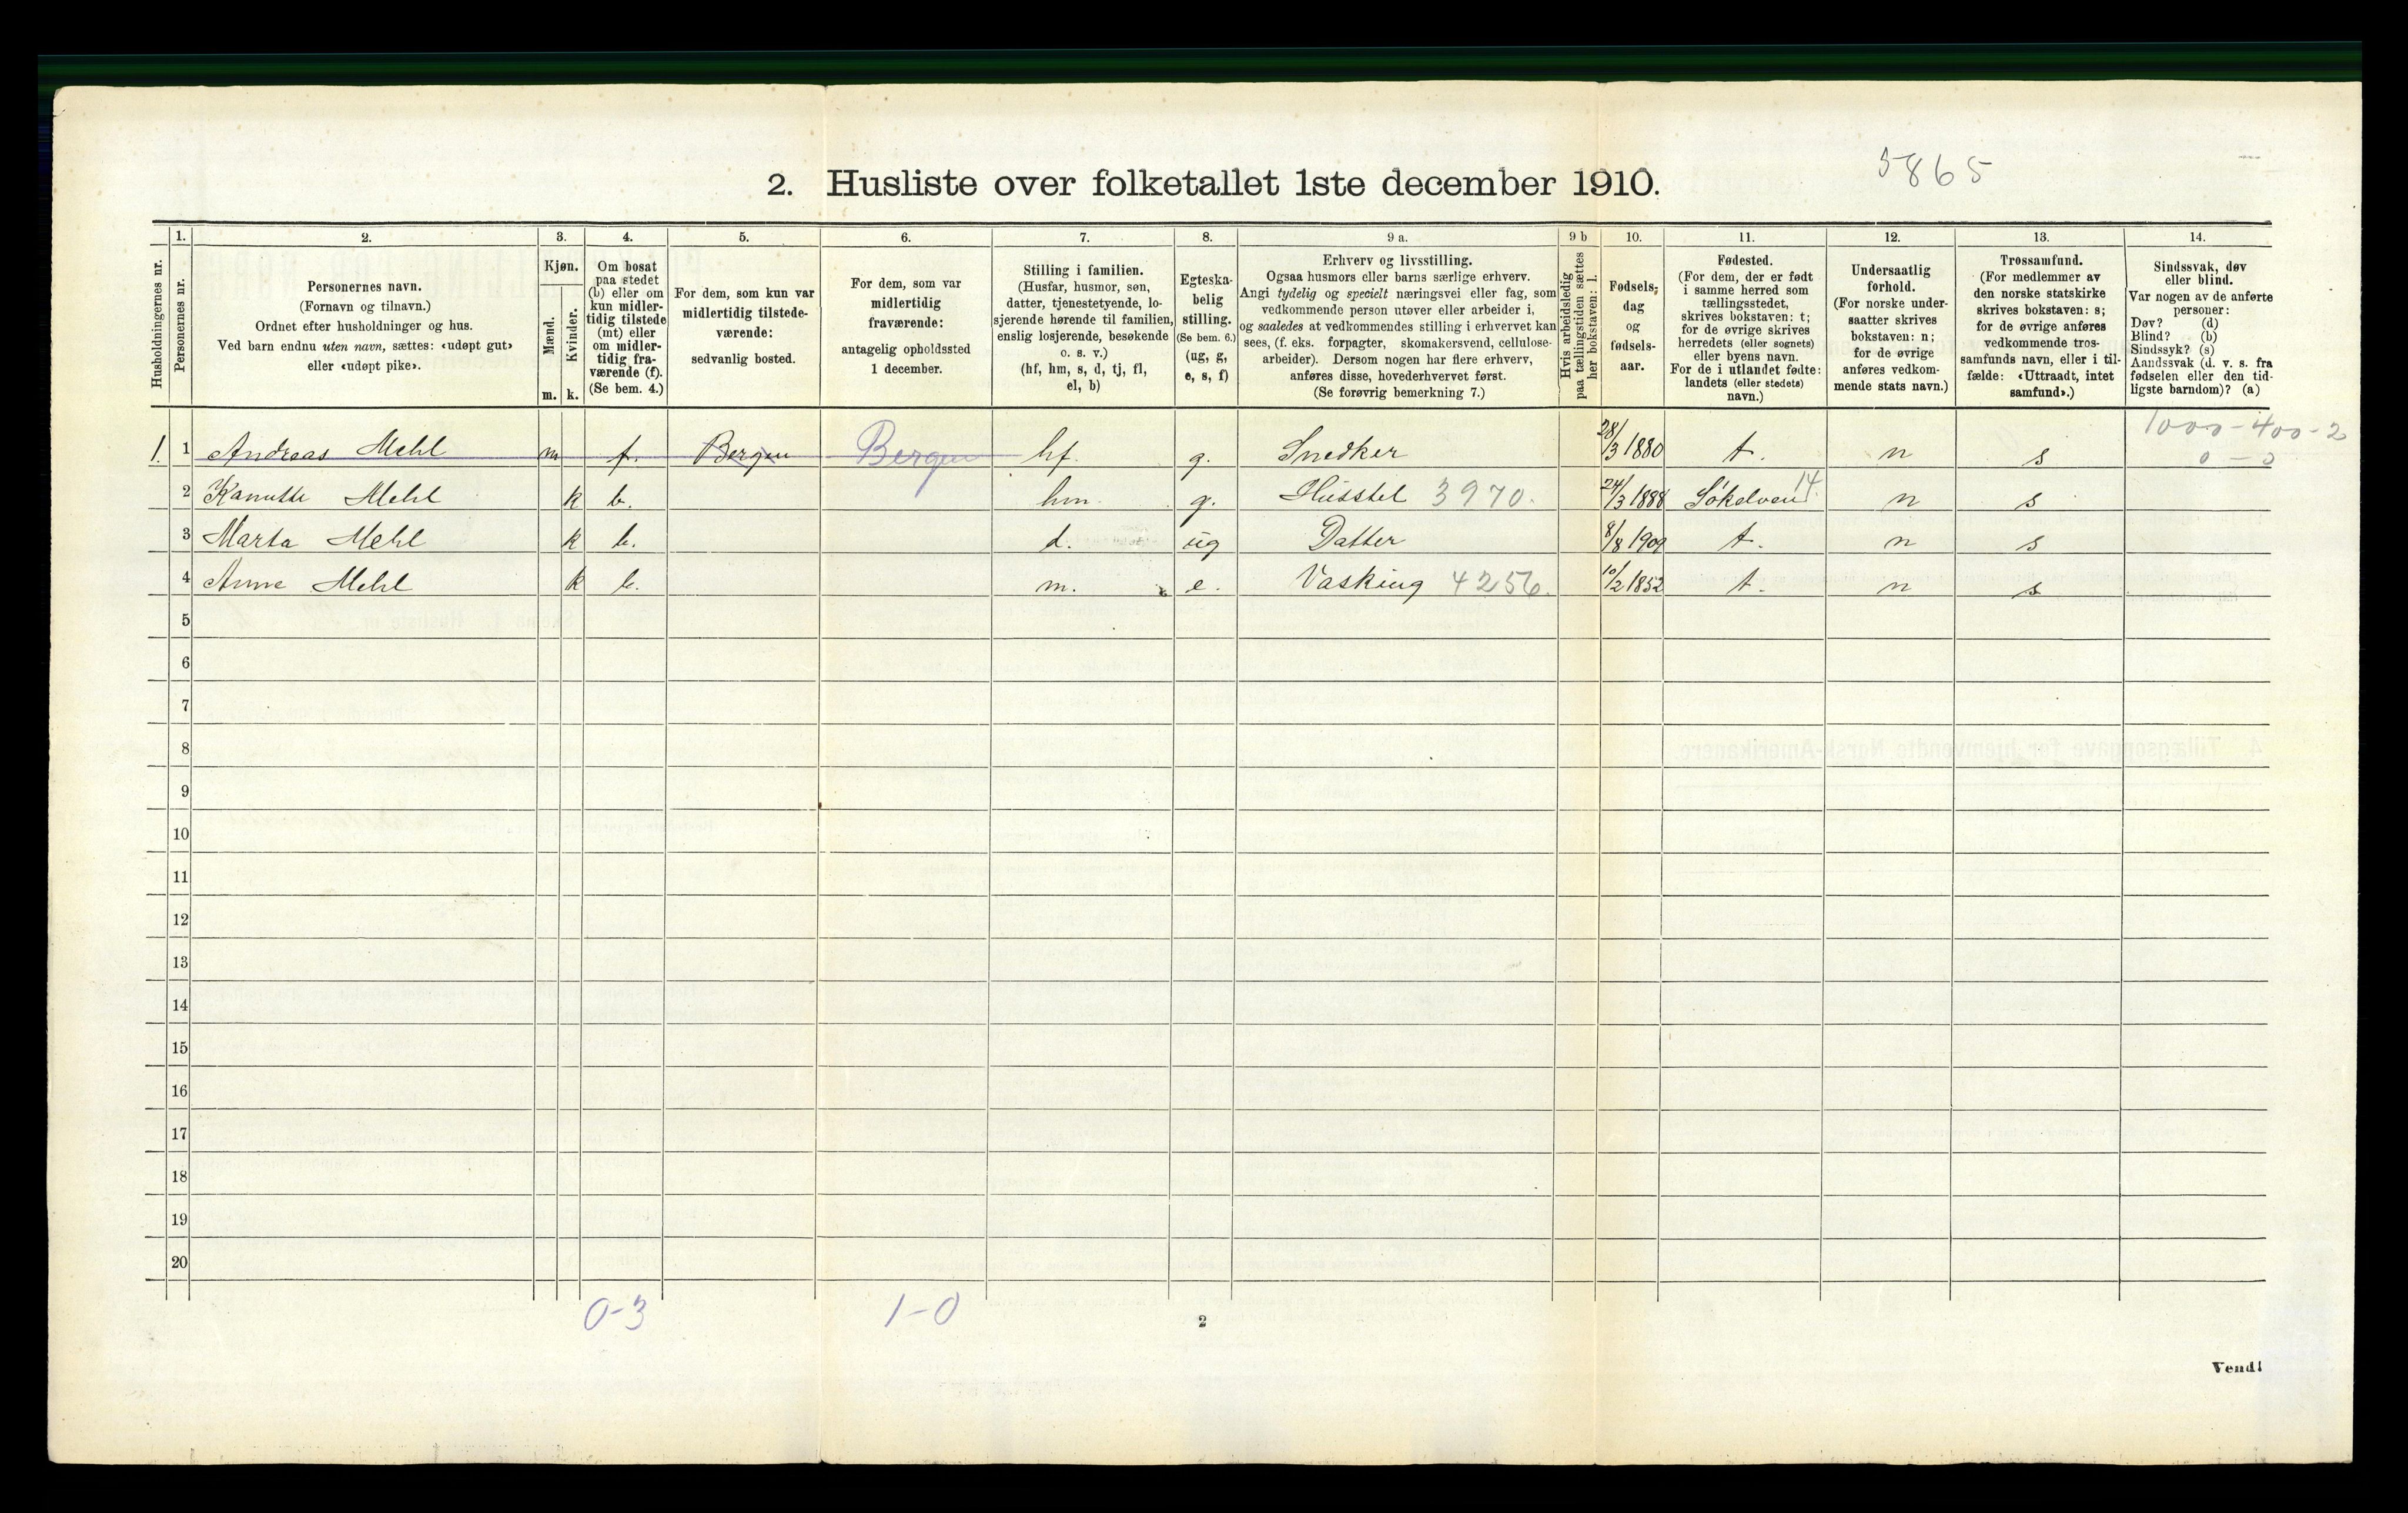 5865
2. Husliste over folketallet 1ste december 1910.
Husholdningernes nr.
1. Personernes nr.
2. Personernes navn.
(Fornavn og tilnavn.)
Ordnet efter husholdninger og hus.
Ved barn endnu uten navn, sættes: «udøpt gut»
eller «udøpt pike».
3. Kjøn.
Mænd. m.
Kvinder. k.
4. Om bosat
paa stedet
(b) eller om
kun midler-
tidig tilstede
(mt) eller
om midler-
tidig fra-
værende (f).
(Se bem. 4.)
5. For dem, som kun var
midlertidig tilstede-
værende:
sedvanlig bosted.
6. For dem, som var
midlertidig
fraværende:
antagelig opholdssted
1 december.
7. Stilling i familien.
(Husfar, husmor, søn,
datter, tjenestetyende, lo-
sjerende hørende til familien,
enslig losjerende, besøkende
o. s. v.)
(hf, hm, s, d, tj, fl,
el, b)
8. Egteska-
belig
stilling.
(Se bem. 6.)
(ug, g,
e, s, f)
9 a. Erhverv og livsstilling.
Ogsaa husmors eller barns særlige erhverv.
Angi tydelig og specielt næringsvei eller fag, som
vedkommende person utøver eller arbeider i,
og saaledes at vedkommendes stilling i erhvervet kan
sees, (f. eks. forpagter, skomakersvend, cellulose-
arbeider). Dersom nogen har flere erhverv,
anføres disse, hovederhvervet først.
(Se forøvrig bemerkning 7.)
9 b Hvis arbeidsledig
paa tællingstiden sættes
her bokstaven: l.
10. Fødsels-
dag
og
fødsels-
aar.
11. Fødested.
(For dem, der er født
i samme herred som
tællingsstedet,
skrives bokstaven: t;
for de øvrige skrives
herredets (eller sognets)
eller byens navn.
For de i utlandet fødte:
landets (eller stedets)
navn.)
12. Undersaatlig
forhold.
(For norske under-
saatter skrives
bokstaven: n;
for de øvrige
anføres vedkom-
mende stats navn.)
13. Trossamfund.
(For medlemmer av
den norske statskirke
skrives bokstaven: s;
for de øvrige anføres
vedkommende tros-
samfunds navn, eller i til-
fælde: «Uttraadt, intet
samfund».)
14. Sindssvak, døv
eller blind.
Var nogen av de anførte
personer:
Døv? (d)
Blind? (b)
Sindssyk? (s)
Aandssvak (d. v. s. fra
fødselen eller den tid-
ligste barndom)? (a)
1. 1 Andreas Mehl m f. Bergen Bergen hf. g. Snedker 28/3 1880 t. n s 1000-400-2
0 - 0
2 Kanutte Mehl k b. hm. g. Husstel 3970. 24/3 1888 Søkelven 14 n s
3 Marta Mehl k b. d. ug Datter 8/8 1909 t. n s
4 Anne Mehl k b. m. e. Vasking 4256. 10/2 1852 t. n s
5
6
7
8
9
10
11
12
13
14
15
16
17
18
19
20
0-3 1-0
2
Vend!